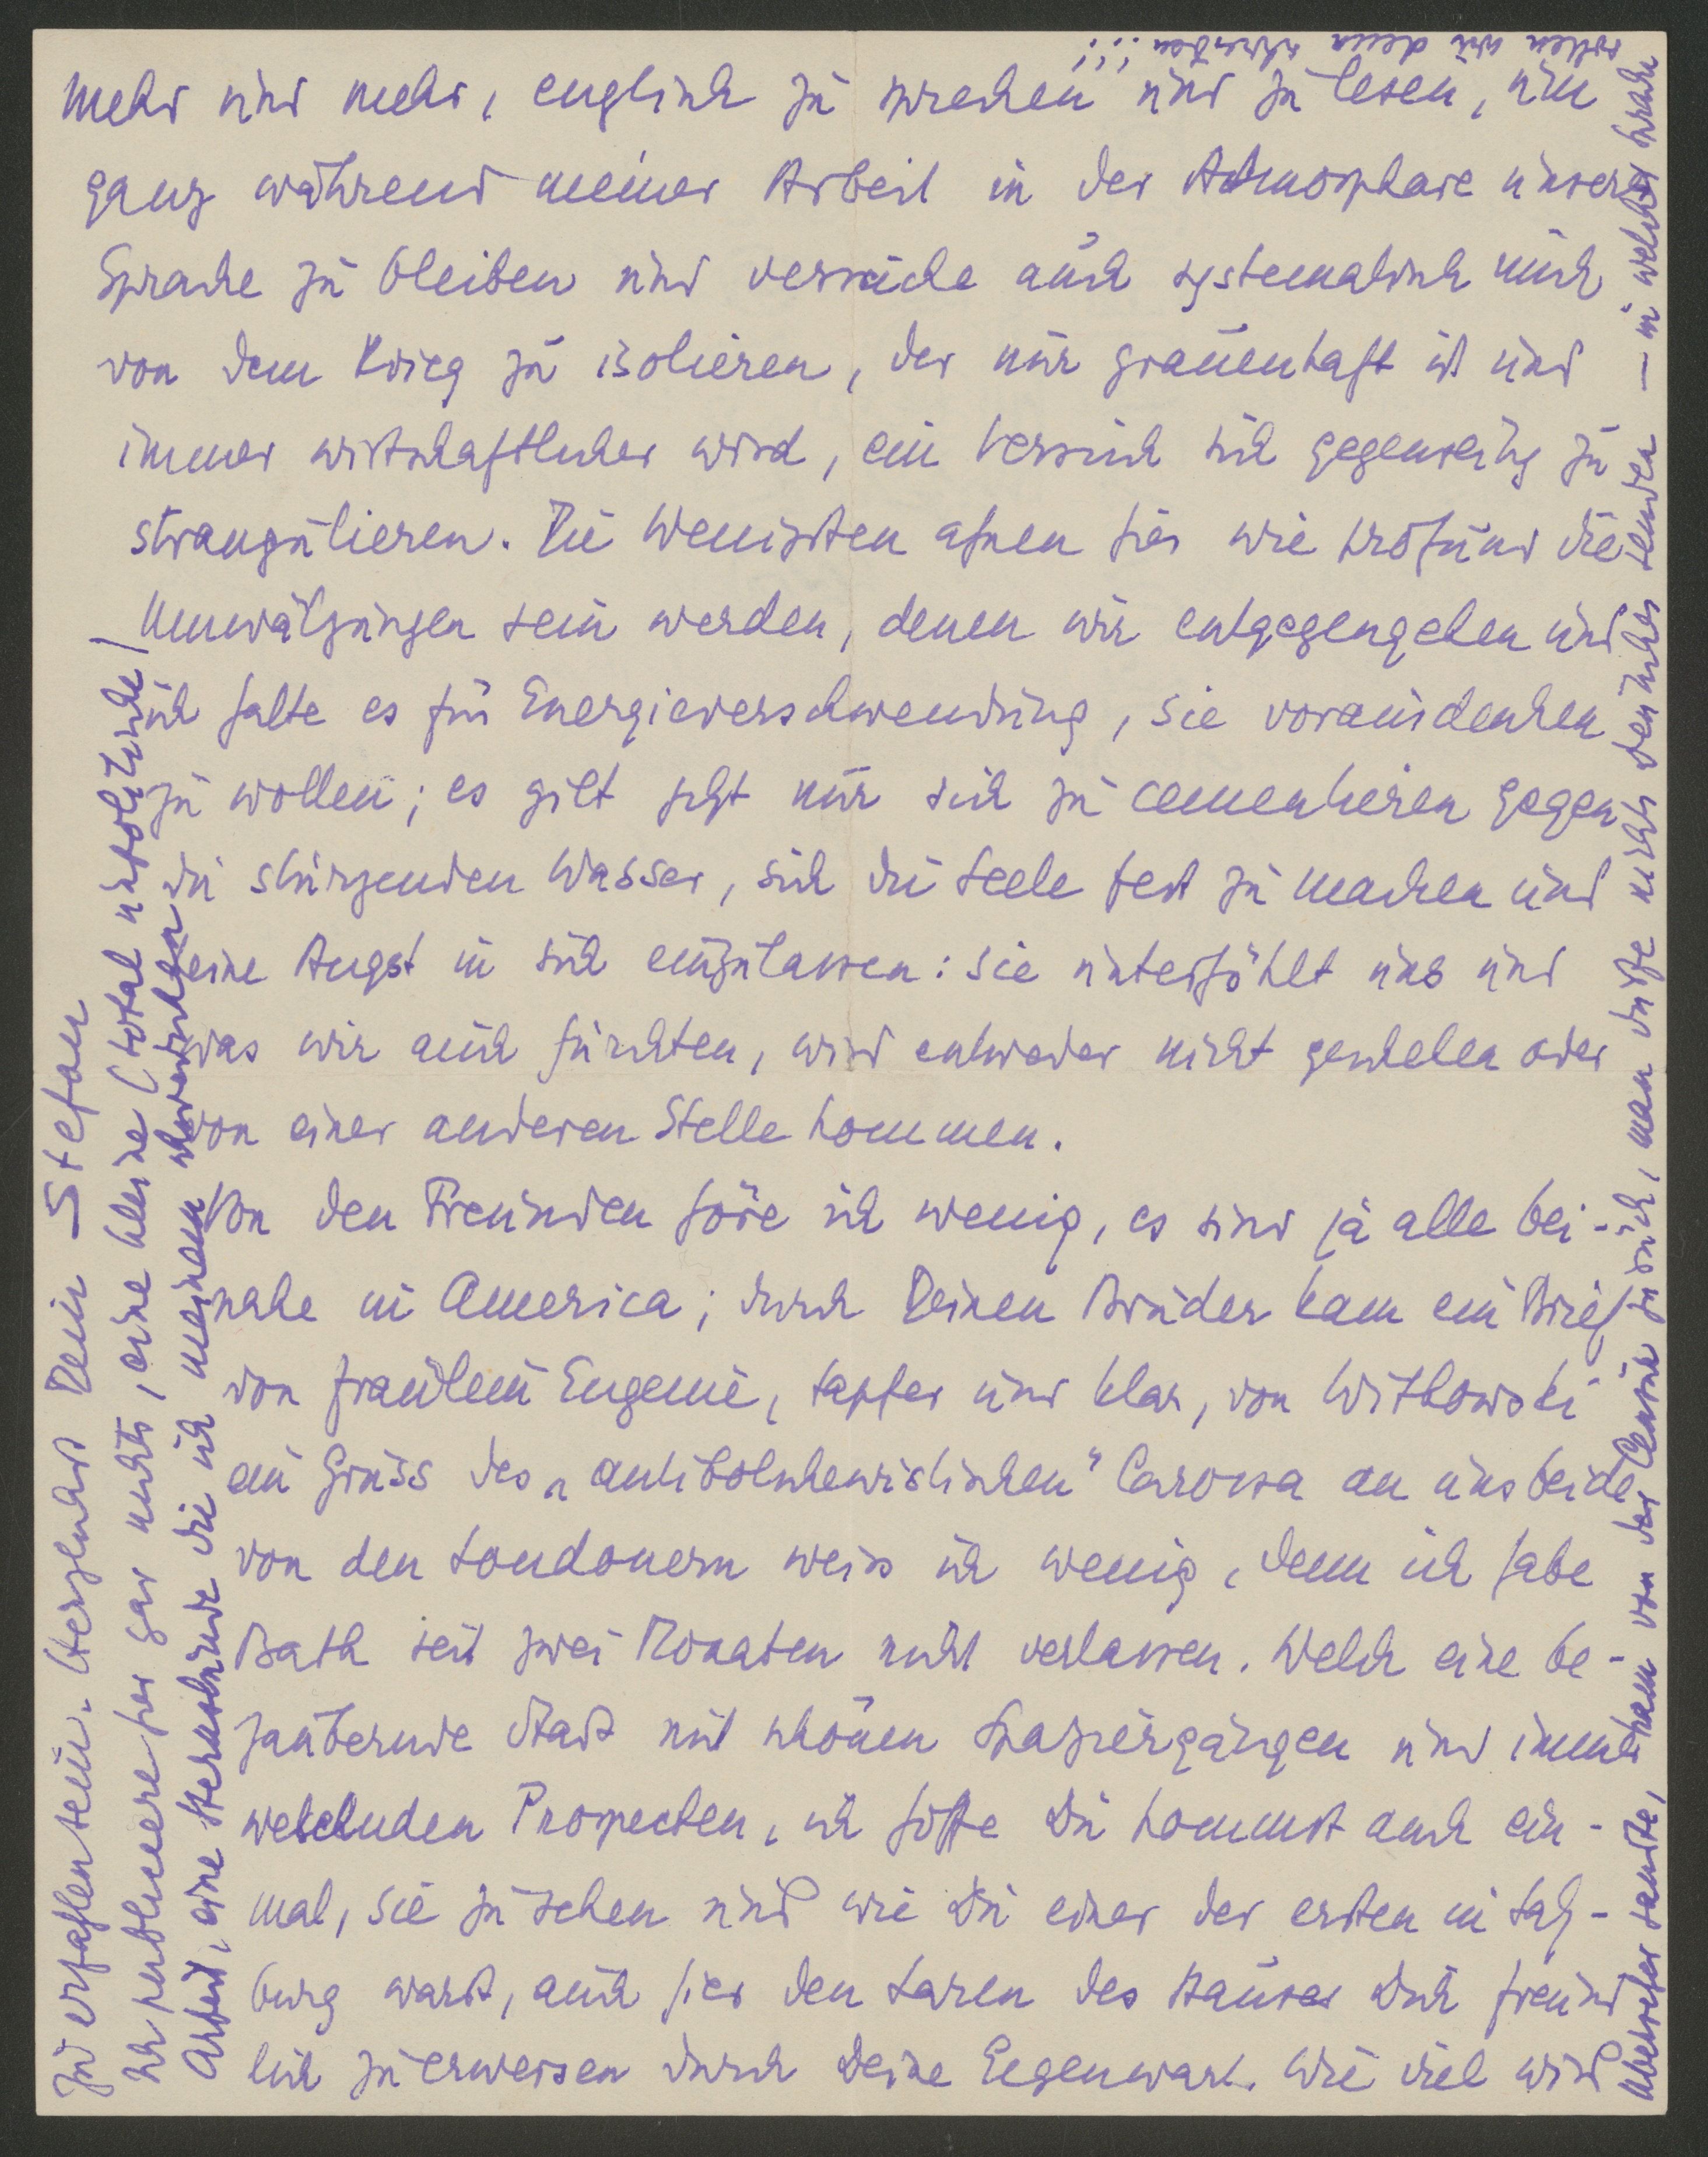 mehr und mehr, englisch zu sprechen und zu lesen, um
ganz während meiner Arbeit in der Atmosphäre unserer
Sprache zu bleiben und versuche auch systematisch mich
von dem Krieg zu isolieren, der nur grauenhaft ist und
immer wirtschaftlicher wird, ein Versuch sich gegenseitig zu
strangulieren. Die Wenigsten ahnen hier wie profund die
Umwälzungen sein werden, denen wir entgegengehen und
ich halte es für Energieverschwendung, sie vorausdenken
zu wollen; es gilt jetzt nur sich zu cementieren gegen
die stürzenden Wasser, sich die Seele fest zu machen und
keine Angst in sich einzulassen: sie unterhöhlt uns und
was wir auch fürchten, wird entweder nicht geschehen oder
von einer anderen Stelle kommen.
Von den Freunden höre ich wenig, es sind ja alle bei-
nahe in America; durch Deinen Bruder kam ein Brief
von Fräulein Eugenie, tapfer und klar, von Witkowski
ein Gruss des „antibolschewistischen" Carossa an uns beide
von den Londonern weiss ich wenig, denn ich habe
Bath seit zwei Monaten nicht verlassen. Welch eine be-
zaubernde Stadt mit schönen Spaziergängen und immer
wechselnden Prospecten, ich hoffe Du kommst auch ein-
mal, sie zu sehen und wie Du einer der ersten in Salz-
burg warst, auch hier den Laren des Hauses Dich freund
lich zu erweisen durch Deine Gegenwart. Wie viel wird
zu erzählen sein. Herzlichst Dein Stefan
Ich publiciere hier gar nichts, eine kleine (total unpolitische)
Arbeit, eine Sternstunde die ich meinem schwedischen
Übersetzer sandte, kam von der Censur zurück, man dürfe nichts deutsches senden – in welcher Sprache
sollen wir denn schreiben!!!